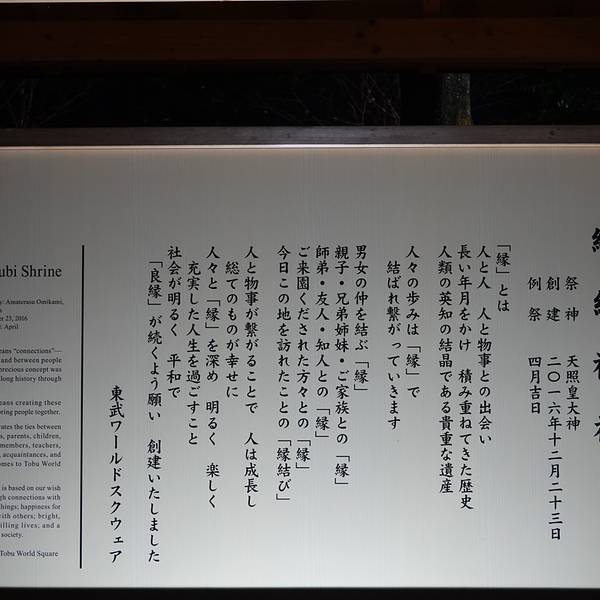 祭神　天照皇大神
創建　二〇一六年十二月二十三日
例祭　四月吉日
「縁」とは
人と人　人と物事との出会い
長い年月をかけ　積み重ねてきた歴史
人類の英知の結晶である貴重な遺産
人々の歩みは「縁」で
結ばれ繋がっていきます
男女の仲を結ぶ「縁」
親子・兄弟姉妹・ご家族との「縁」
師弟・友人・知人との「縁」
ご来園くだされた方々との「縁」
今日この地を訪れたことの「縁結び」
人と物事が繋がることで　人は成長し
総てのものが幸せに
人々と「縁」を深め　明るく　楽しく
充実した人生を過ごすこと
社会が明るく　平和で
「良縁」が続くよう願い　創建いたしました
東武ワールドスクウェア
ubi Shrine
y: Amaterasu Omikami,
er 23, 2016
l: April
eans "connections"—
and between people
precious concept was
long history through
eans creating these
bring people together.
rates the ties between
s, parents, children,
members, teachers,
, acquaintances, and
omes to Tobu World
is based on our wish
gh connections with
hings; happiness for
with others; bright,
illing lives; and a
society.
Tobu World Square